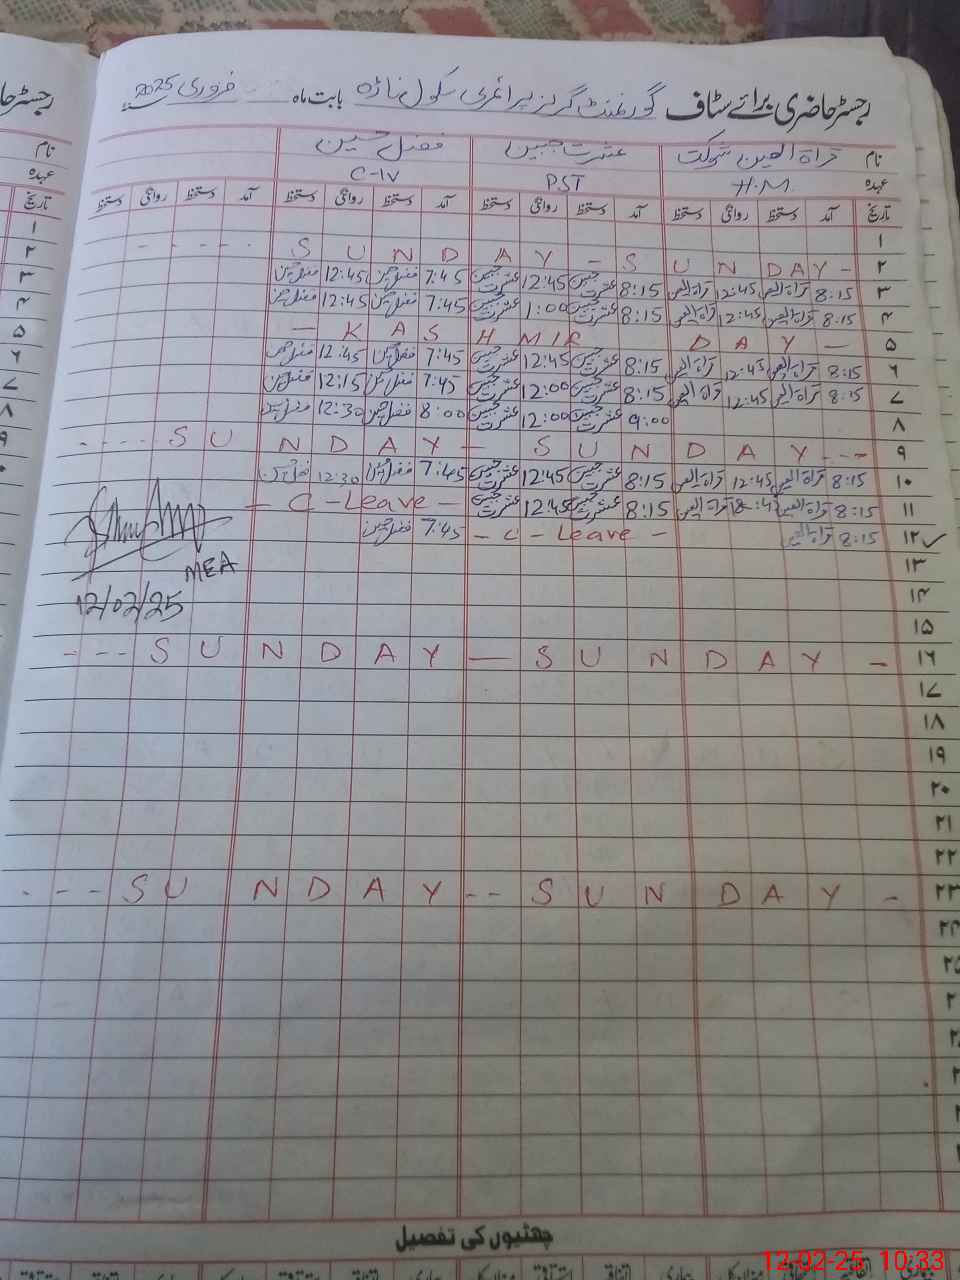 رجسٹر حاضری برائے سٹاف گورنمنٹ گرلز پرائمری سکول ناڑہ بابت ماہ فروری 2025
نام قراۃ العین شوکت عشرت جبین فضل حسین
عہدہ H.M. PST C-IV
تاریخ آمد دستخط روانگی دستخط آمد دستخط روانگی دستخط آمد دستخط روانگی دستخط آمد دستخط روانگی دستخط
۱
۲ S U N D A Y - S U N D A Y -
۳ 8:15 قراۃ العین 12:45 قراۃ العین 8:15 عشرت جبین 12:45 عشرت جبین 7:45 فضل حسین 12:45 فضل حسین
۴ 8:15 قراۃ العین 12:45 قراۃ العین 8:15 عشرت جبین 1:00 عشرت جبین 7:45 فضل حسین 12:45 فضل حسین
۵ — K A S H M I R D A Y —
۶ 8:15 قراۃ العین 12:45 قراۃ العین 8:15 عشرت جبین 12:45 عشرت جبین 7:45 فضل حسین 12:45 فضل حسین
۷ 8:15 قراۃ العین 12:45 قراۃ العین 8:15 عشرت جبین 12:00 عشرت جبین 7:45 فضل حسین 12:15 فضل حسین
۸ 9:00 عشرت جبین 12:00 عشرت جبین 8:00 فضل حسین 12:30 فضل حسین
۹ ---- S U N D A Y - S U N D A Y ---
۱۰ 8:15 قراۃ العین 12:45 قراۃ العین 8:15 عشرت جبین 12:45 عشرت جبین 7:45 فضل حسین 12:30 فضل حسین
۱۱ 8:15 قراۃ العین قراۃ العین 8:15 عشرت جبین 12:45 عشرت جبین — C - Leave —
۱۲ ✓ 8:15 قراۃ العین - C - Leave - 7:45 فضل حسین
MEA
12/02/25
۱۳
۱۴
۱۵
۱۶ --- S U N D A Y — S U N D A Y -
۱۷
۱۸
۱۹
۲۰
۲۱
۲۲
۲۳ --- S U N D A Y -- S U N D A Y -
۲۴
چھٹیوں کی تفصیل
12-02-25 10:33